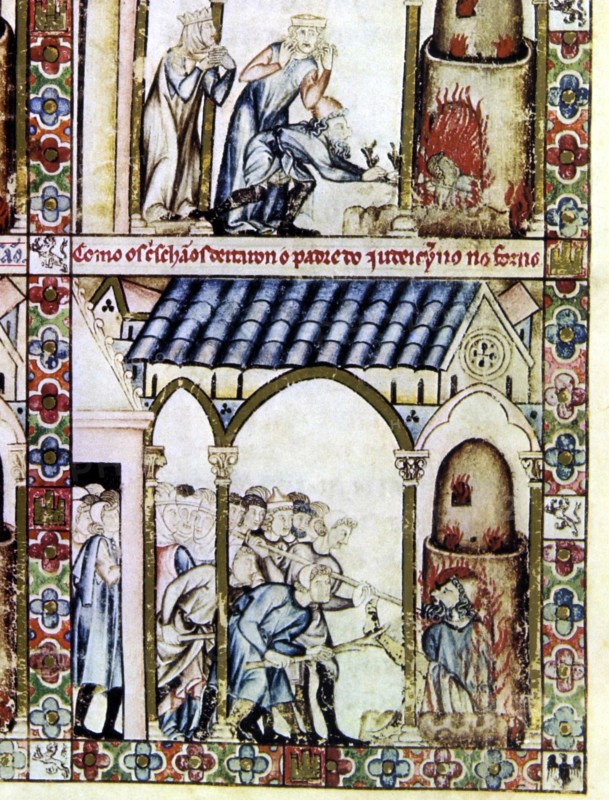 ão. Como os cͥschãos deitaron o padre do judeucỹno no forno